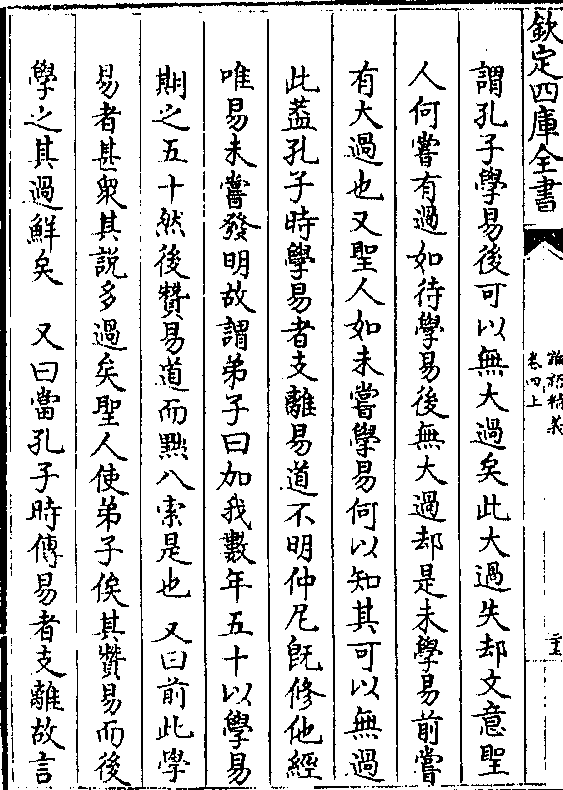 欽定四庫全書
論孟精義
卷四上
謂孔子學易後可以無大過矣此大過失却文意聖
人何嘗有過如待學易後無大過却是未學易前嘗
有大過也又聖人如未嘗學易何以知其可以無過
此葢孔子時學易者支離易道不明仲尼既修他經
唯易未嘗發明故謂弟子曰加我數年五十以學易
期之五十然後贊易道而黜八索是也 又曰前此學
易者甚衆其說多過矣聖人使弟子俟其贊易而後
學之其過鮮矣 又曰當孔子時傳易者支離故言